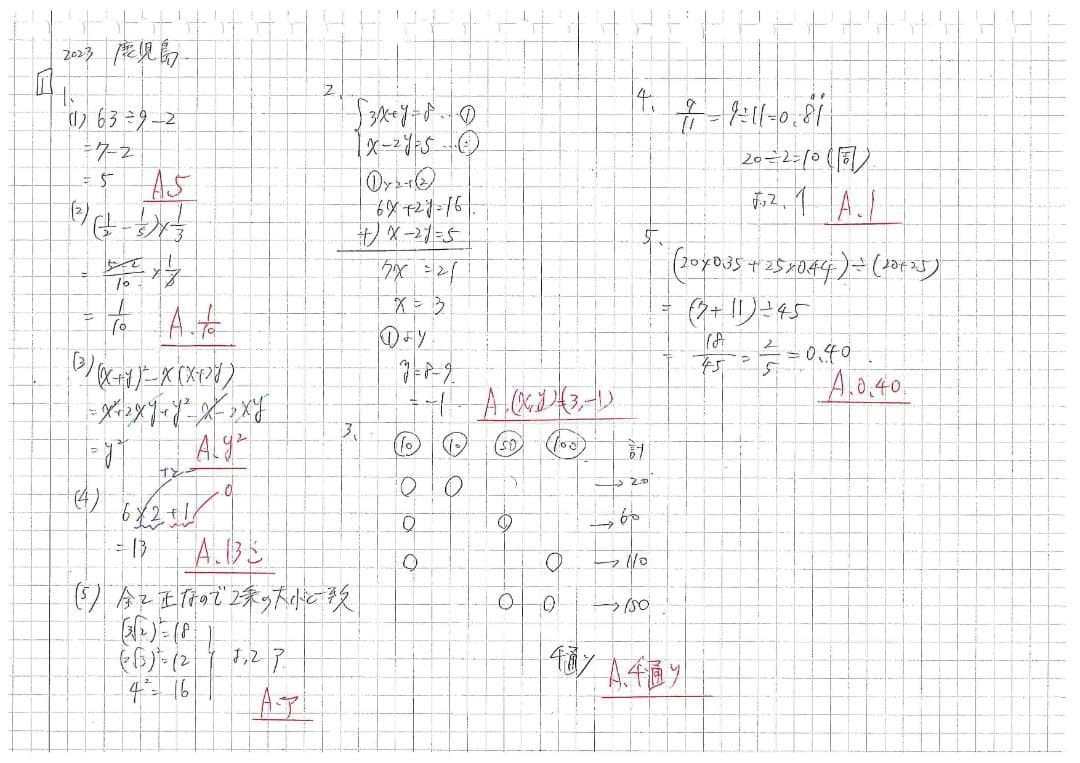 2023 鹿児島.
1
1.
(1) 63÷9-2
=7-2
=5
A.5
(2) (1/2 - 1/5)×1/3
= (5-2)/10 × 1/3
= 1/10
A. 1/10
(3) (x+y)²-x(x+2y)
=x²+2xy+y²-x²-2xy
=y²
A.y²
(4)
6×2+1
0
=13
A.13こ
(5) 全て正なので2乗の大小と一致
(3√2)²=18
(2√3)²=12
4²=16
よって ア.
A.ア
2.
3x+y=8…①
x-2y=5…②
①×2+②
6x+2y=16
+) x-2y=5
7x =21
x=3
①より.
y=8-9
=-1
A.(x,y)=(3,-1)
3.
10 10 50 100 計
○ ○ →20
○ ○ →60
○ ○ →110
○ ○ →150
4通り
A.4通り
4.
9/11=9÷11=0.8̇1̇
20÷2=10(周)
よって.1
A.1
5.
(20×0.35+25×0.44)÷(20+25)
= (7+11)÷45
= 18/45 = 2/5 = 0.40.
A.0.40.